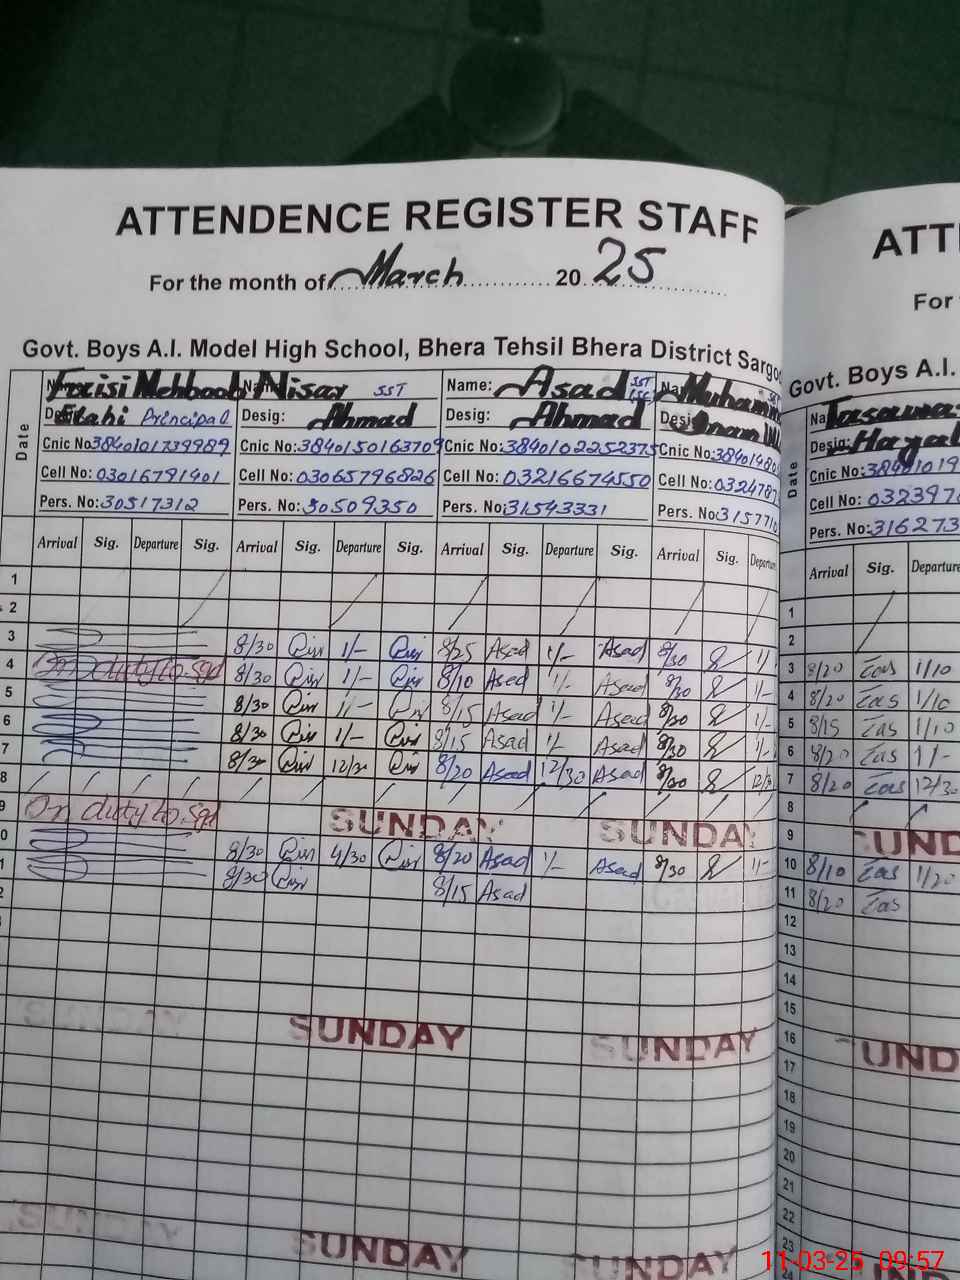 ATTENDENCE REGISTER STAFF
For the month of March 20 25
Govt. Boys A.I. Model High School, Bhera Tehsil Bhera District Sargo
Date
Mehboob Elahi Principal
Cnic No: 3840101739989
Cell No: 03016791401
Pers. No: 30517312
Nisar SST
Desig: Ahmad
Cnic No: 3840150163709
Cell No: 03065796826
Pers. No: 30509350
Name: Asad SST
Desig: Ahmad
Cnic No: 3840102252375
Cell No: 03216674550
Pers. No: 31543331
Muhamm
Cnic No: 3840148
Cell No: 032478
Pers. No: 315771
Arrival Sig. Departure Sig. Arrival Sig. Departure Sig. Arrival Sig. Departure Sig. Arrival Sig. Departure
1
2
3 8/30 1/- 8/25 Asad 1/- Asad 8/30 1/
4 On duty to Sgd 8/30 1/- 8/10 Asad 1/- Asad 8/30 1/-
5 8/30 1/- 8/15 Asad 1/- Asad 8/30 1/-
6 8/30 1/- 8/15 Asad 1/- Asad 8/30 1/-
7 8/30 12/30 8/20 Asad 12/30 Asad 8/30 12/3
8
9 On duty to Sgd SUNDAY SUNDAY
0 8/30 4/30 8/20 Asad 1/- Asad 8/30 1/-
1 8/30 8/15 Asad
2
SUNDAY SUNDAY SUNDAY
SUNDAY SUNDAY SUNDAY
ATT
For
Govt. Boys A.I.
Date
Desig: Hayat
Cnic No: 38401019
Cell No: 032397
Pers. No: 316273
Arrival Sig. Departure
1
2
3 8/20 Tas 1/10
4 8/20 Tas 1/10
5 8/15 Tas 1/10
6 8/20 Tas 1/-
7 8/20 Tas 12/30
8
9 SUND
10 8/10 Tas 1/20
11 8/20 Tas
12
13
14
15
16 UND
17
18
19
20
21
22
23
24
11-03-25 09:57